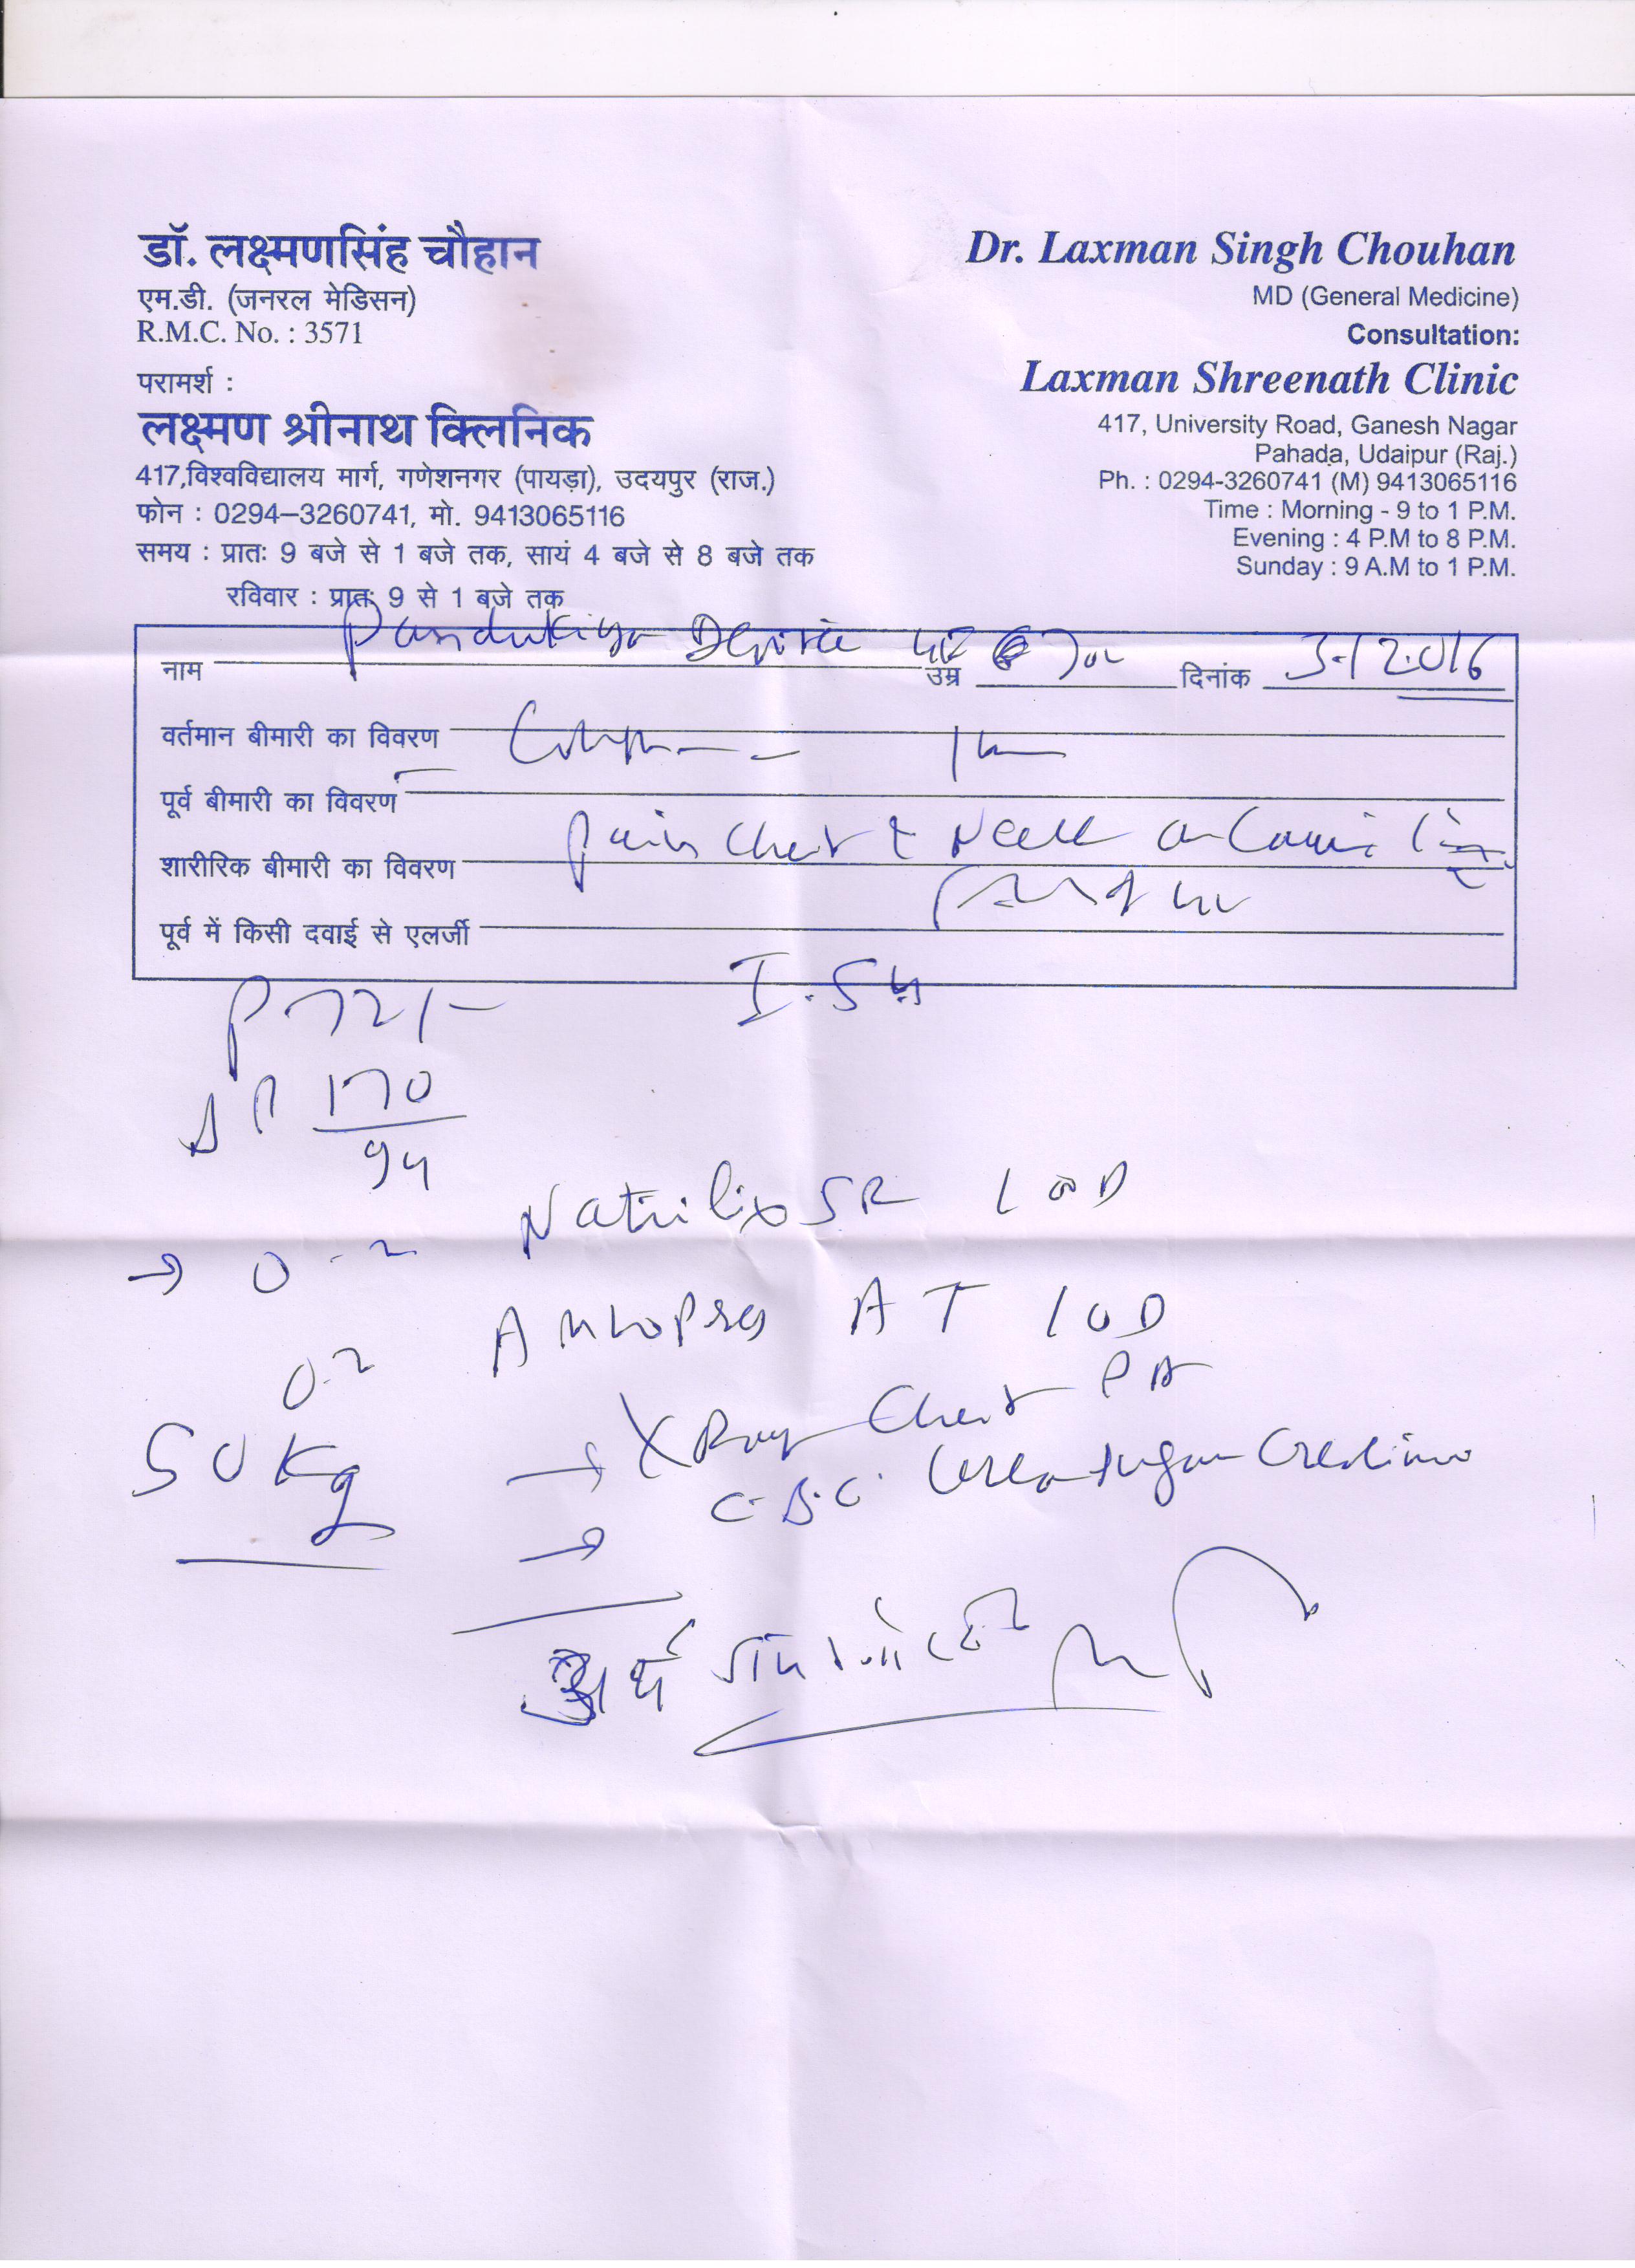 डॉ. लक्ष्मणसिंह चौहान
एम.डी. (जनरल मेडिसन)
R.M.C. No. : 3571
परामर्श :
लक्ष्मण श्रीनाथ क्लिनिक
417,विश्वविद्यालय मार्ग, गणेशनगर (पायड़ा), उदयपुर (राज.)
फोन : 0294–3260741, मो. 9413065116
समय : प्रातः 9 बजे से 1 बजे तक, सायं 4 बजे से 8 बजे तक
रविवार : प्रातः 9 से 1 बजे तक
Dr. Laxman Singh Chouhan
MD (General Medicine)
Consultation:
Laxman Shreenath Clinic
417, University Road, Ganesh Nagar
Pahada, Udaipur (Raj.)
Ph. : 0294-3260741 (M) 9413065116
Time : Morning - 9 to 1 P.M.
Evening : 4 P.M to 8 P.M.
Sunday : 9 A.M to 1 P.M.
नाम उम्र दिनांक
वर्तमान बीमारी का विवरण
पूर्व बीमारी का विवरण
Pain Chest
शारीरिक बीमारी का विवरण
पूर्व में किसी दवाई से एलर्जी
P 72/-
BP 170/94
Natrilix SR 1 OD
Amlopres AT 1 OD
50 Kg
X Ray Chest PA
C.B.C. Urea Sugar Creatinine